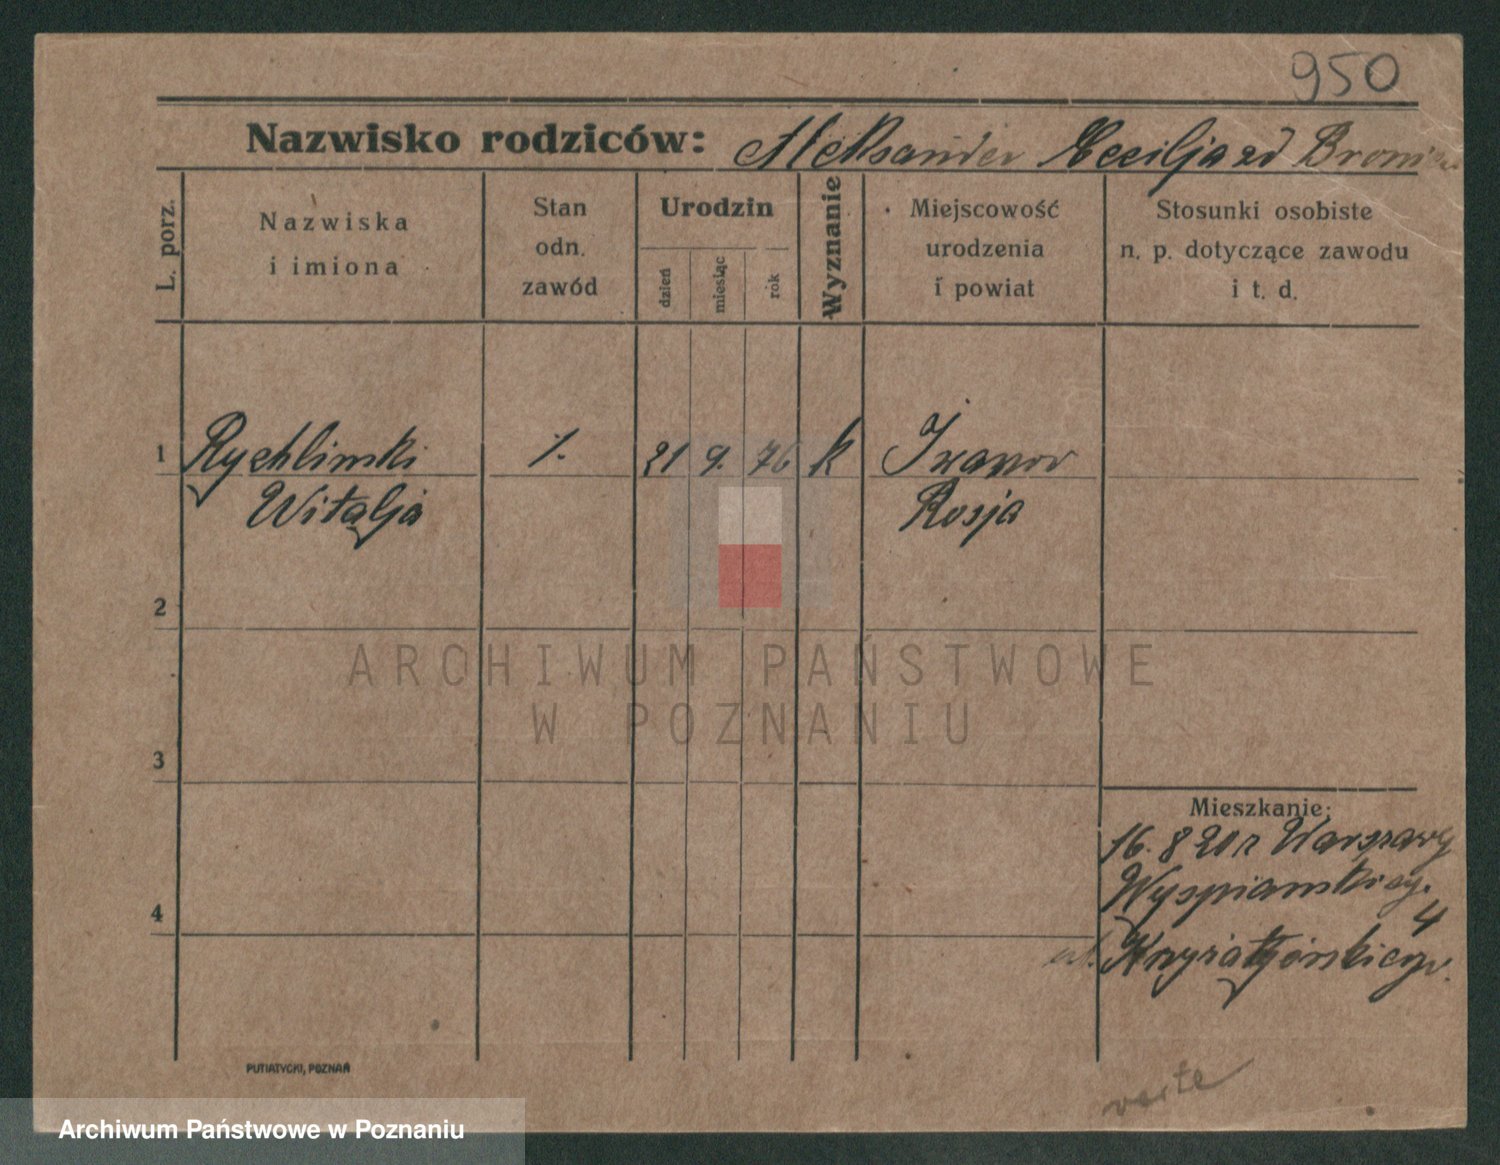 950
Nazwisko rodziców: Aleksander Cecilja zd Broni
L. porz.
Nazwiska
i imiona
Stan
odn.
zawód
Urodzin
dzień
miesiąc
rok
Wyznanie
Miejscowość
urodzenia
i powiat
Stosunki osobiste
n. p. dotyczące zawodu
i t. d.
1 Rychlinski ż. 21 9. 76 k Iwanow
Witalja Rosja
2
ARCHIWUM PAŃSTWOWE
W POZNANIU
3
Mieszkanie:
16. 8 20 r Warszawy
Wyspianski
4
4
u
PUTIATYCKI, POZNAŃ
verte
Archiwum Państwowe w Poznaniu